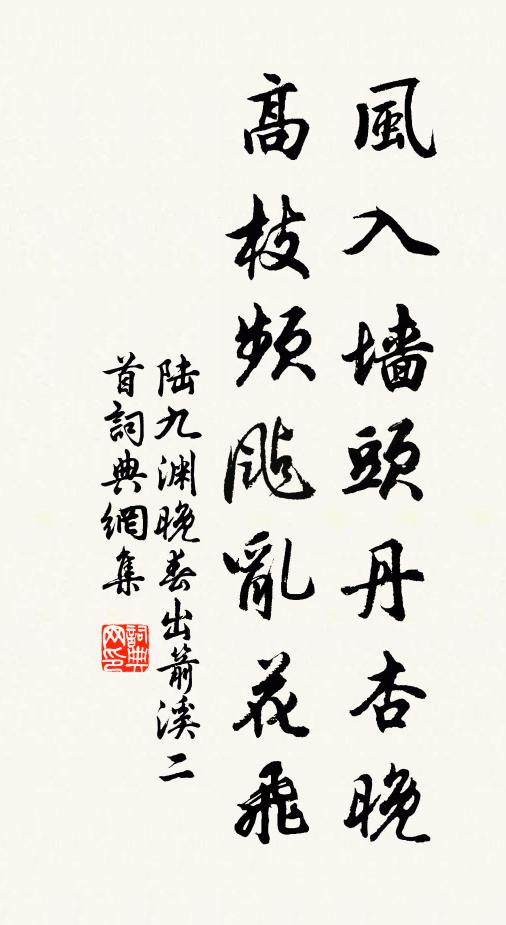 風入墻頭丹杏晚
高枝頻颭亂花飛
陆九渊晚春出箭溪二
首詞典網集
詞典
网印